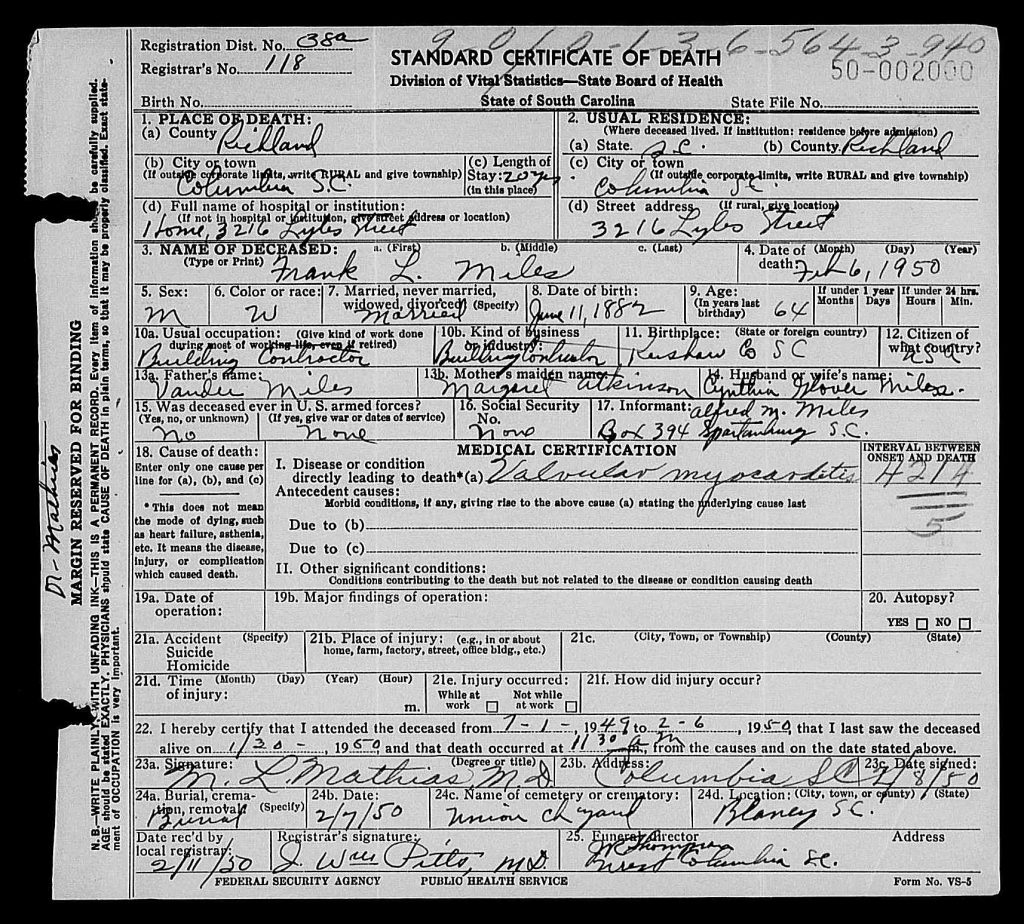 Registration Dist. No. 38a
9-0 1 0-1-3 6-564-3-940
STANDARD CERTIFICATE OF DEATH
50-002000
Registrar's No. 118
Division of Vital Statistics—State Board of Health
Birth No.
State of South Carolina
State File No.
1. PLACE OF DEATH:
(a) County Richland
2. USUAL RESIDENCE:
(Where deceased lived. If institution: residence before admission)
(a) State. S.C. (b) County. Richland
(b) City or town
(If outside corporate limits, write RURAL and give township)
Columbia S.C.
(c) Length of
Stay: 20 yrs
(in this place)
(c) City or town
(If outside corporate limits, write RURAL and give township)
Columbia S.C.
(d) Full name of hospital or institution:
(If not in hospital or institution, give street address or location)
Home, 3216 Lyles Street
(d) Street address (If rural, give location)
3216 Lyles Street
3. NAME OF DECEASED: a. (First) b. (Middle) c. (Last)
(Type or Print) Frank L. Miles
4. Date of (Month) (Day) (Year)
death: Feb 6, 1950
5. Sex:
M
6. Color or race:
W
7. Married, never married,
widowed, divorced: (Specify)
Married
8. Date of birth:
June 11, 1882
9. Age:
(In years last
birthday) 64
If under 1 year
Months Days
If under 24 hrs.
Hours Min.
10a. Usual occupation: (Give kind of work done
during most of working life, even if retired)
Building Contractor
10b. Kind of business
or industry:
Building Contractor
11. Birthplace: (State or foreign country)
Kershaw Co S C
12. Citizen of
what country?
13a. Father's name:
Vander Miles
13b. Mother's maiden name:
Margaret Atkinson
14. Husband or wife's name:
Cynthia Glover Miles.
15. Was deceased ever in U. S. armed forces?
(Yes, no, or unknown) (If yes, give war or dates of service)
No None
16. Social Security
No.
None
17. Informant: Alfred M. Miles
Box 394 Spartanburg S.C.
18. Cause of death:
Enter only one cause per
line for (a), (b), and (c)
* This does not mean
the mode of dying, such
as heart failure, asthenia,
etc. It means the disease,
injury, or complication
which caused death.
MEDICAL CERTIFICATION
I. Disease or condition
directly leading to death*(a) Valvular myocarditis
Antecedent causes:
Morbid conditions, if any, giving rise to the above cause (a) stating the underlying cause last
Due to (b)
Due to (c)
II. Other significant conditions:
Conditions contributing to the death but not related to the disease or condition causing death
INTERVAL BETWEEN
ONSET AND DEATH
4214
5
19a. Date of
operation:
19b. Major findings of operation:
20. Autopsy?
YES NO
21a. Accident (Specify)
Suicide
Homicide
21b. Place of injury: (e.g., in or about
home, farm, factory, street, office bldg., etc.)
21c. (City, Town, or Township) (County) (State)
21d. Time (Month) (Day) (Year) (Hour)
of injury: m.
21e. Injury occurred:
While at Not while
work at work
21f. How did injury occur?
22. I hereby certify that I attended the deceased from 7-1-, 1949 to 2-6, 1950, that I last saw the deceased
alive on 1/30-, 1950, and that death occurred at 11 30 a m from the causes and on the date stated above.
23a. Signature: (Degree or title)
M. L. Mathias M D
23b. Address:
Columbia S C
23c. Date signed:
2/8/50
24a. Burial, crema-
tion, removal (Specify)
Burial
24b. Date:
2/7/50
24c. Name of cemetery or crematory:
Union Ch yard
24d. Location: (City, town, or county) (State)
Blaney S.C.
Date rec'd by
local registrar:
2/11/50
Registrar's signature:
J. Wm Pitts, M.D.
25. Funeral director Address
Thompson
Columbia S.C.
FEDERAL SECURITY AGENCY PUBLIC HEALTH SERVICE
Form No. VS-5
Dr-Mathias
MARGIN RESERVED FOR BINDING
N. B.—WRITE PLAINLY, WITH UNFADING INK—THIS IS A PERMANENT RECORD. Every item of information should be carefully supplied.
AGE should be stated EXACTLY. PHYSICIANS should state CAUSE OF DEATH in plain terms, so that it may be properly classified. Exact state-
ment of OCCUPATION is very important.